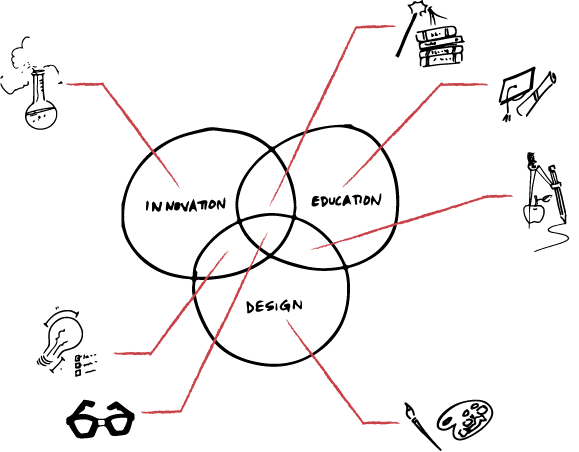 INNOVATION
EDUCATION
DESIGN